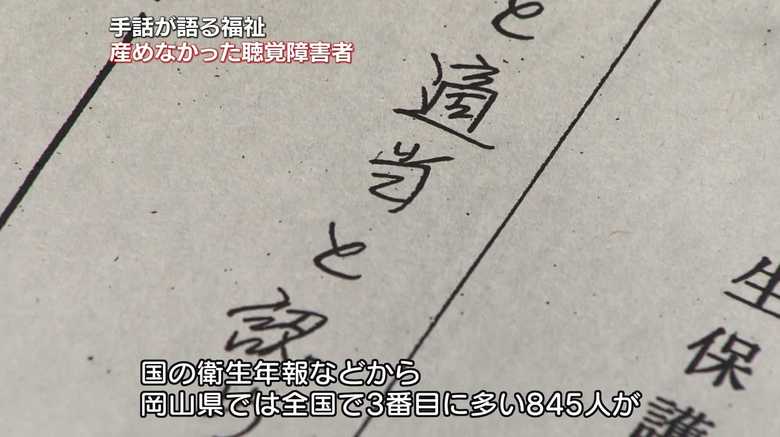 手話が語る福祉
産めなかった聴覚障害者
生保護
と適当と認
国の衛生年報などから
岡山県では全国で3番目に多い845人が